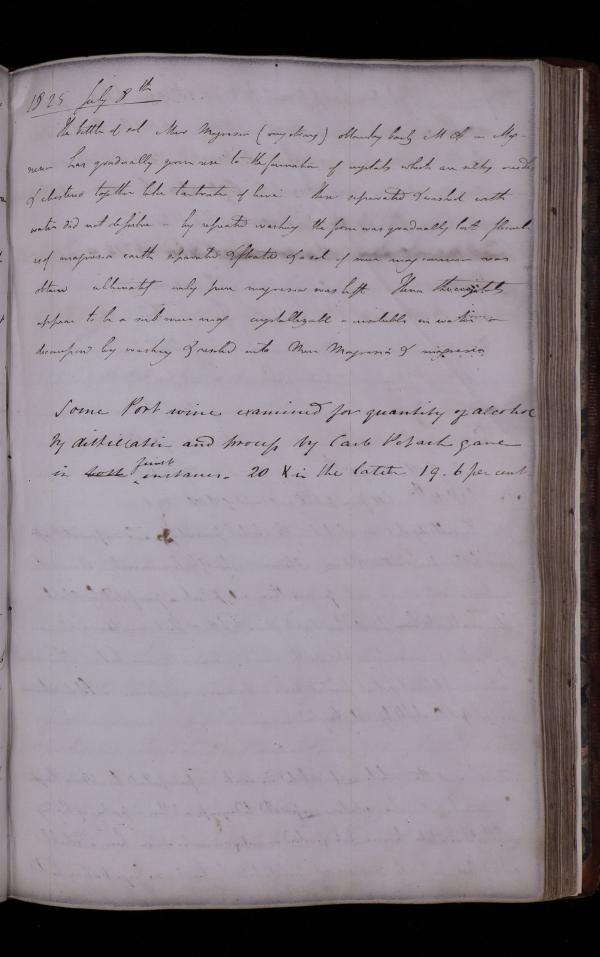 1825 July 8th
The bottle of sol Mur Magnesia (very strong)
has gradually given rise to the formation of crystals which are silky needles
& clustered together like tartrate of lime. These separated & washed with
water did not dissolve - by repeated washing the form was gradually lost flocculi
of magnesia earth separated & floated & a sol of mur mag was
obtained ultimately only pure magnesia was left. Hence the crystals
appear to be a sub mur mag crystallizable - insoluble in water &
decomposed by washing & resolved into Mur Magnesia & magnesia
Some Port wine examined for quantity of alcohol
by distillation and process by Carb Potash gave
in first instance - 20 & in the latter 19.6 per cent